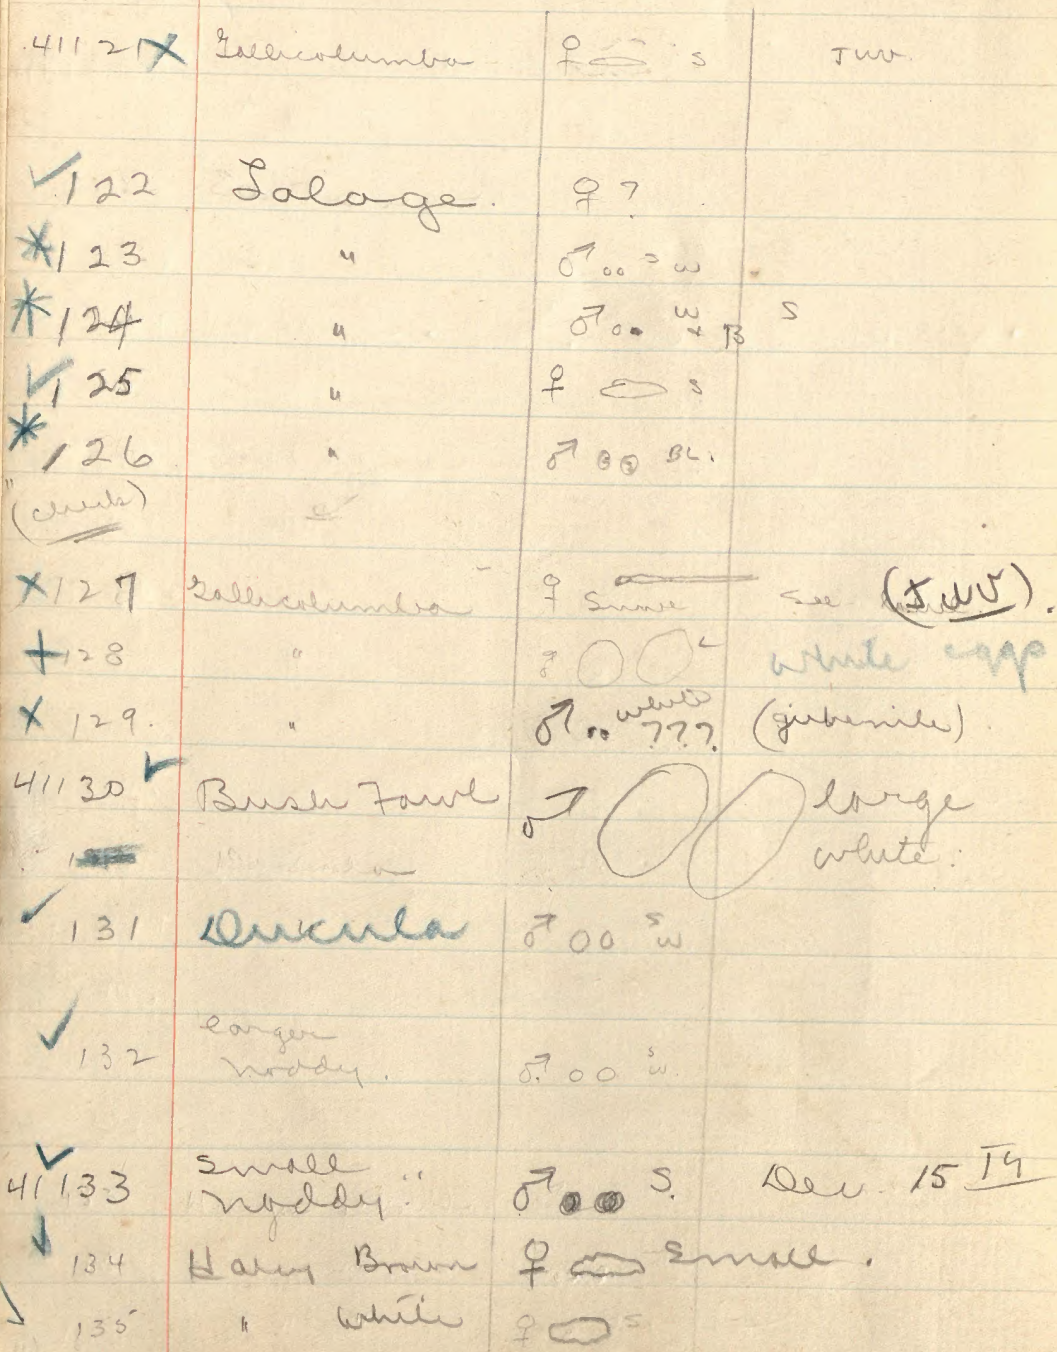 41121 X Gallicolumba ♀ S Juv.
✓ 122 Lalage. ♀ ?
* 123 " ♂ S W
* 124 " ♂ W + B S
✓ 125 " ♀ S
* 126 " ♂ BL.
(check)
X 127 Gallicolumba ♀ Same See (Juv).
+ 128 " ♂ L white eggs
X 129. " ♂ white ??? (juvenile)
41130 ✓ Bush Fowl ♂ large
white.
✓ 131 Ducula ♂ S W
larger
✓ 132 Noddy. ♂ S W.
small
41133 ✓ Noddy. ♂ S. Dec. 15 TH
✓ 134 Brown ♀ Small.
135 " White ♀ S